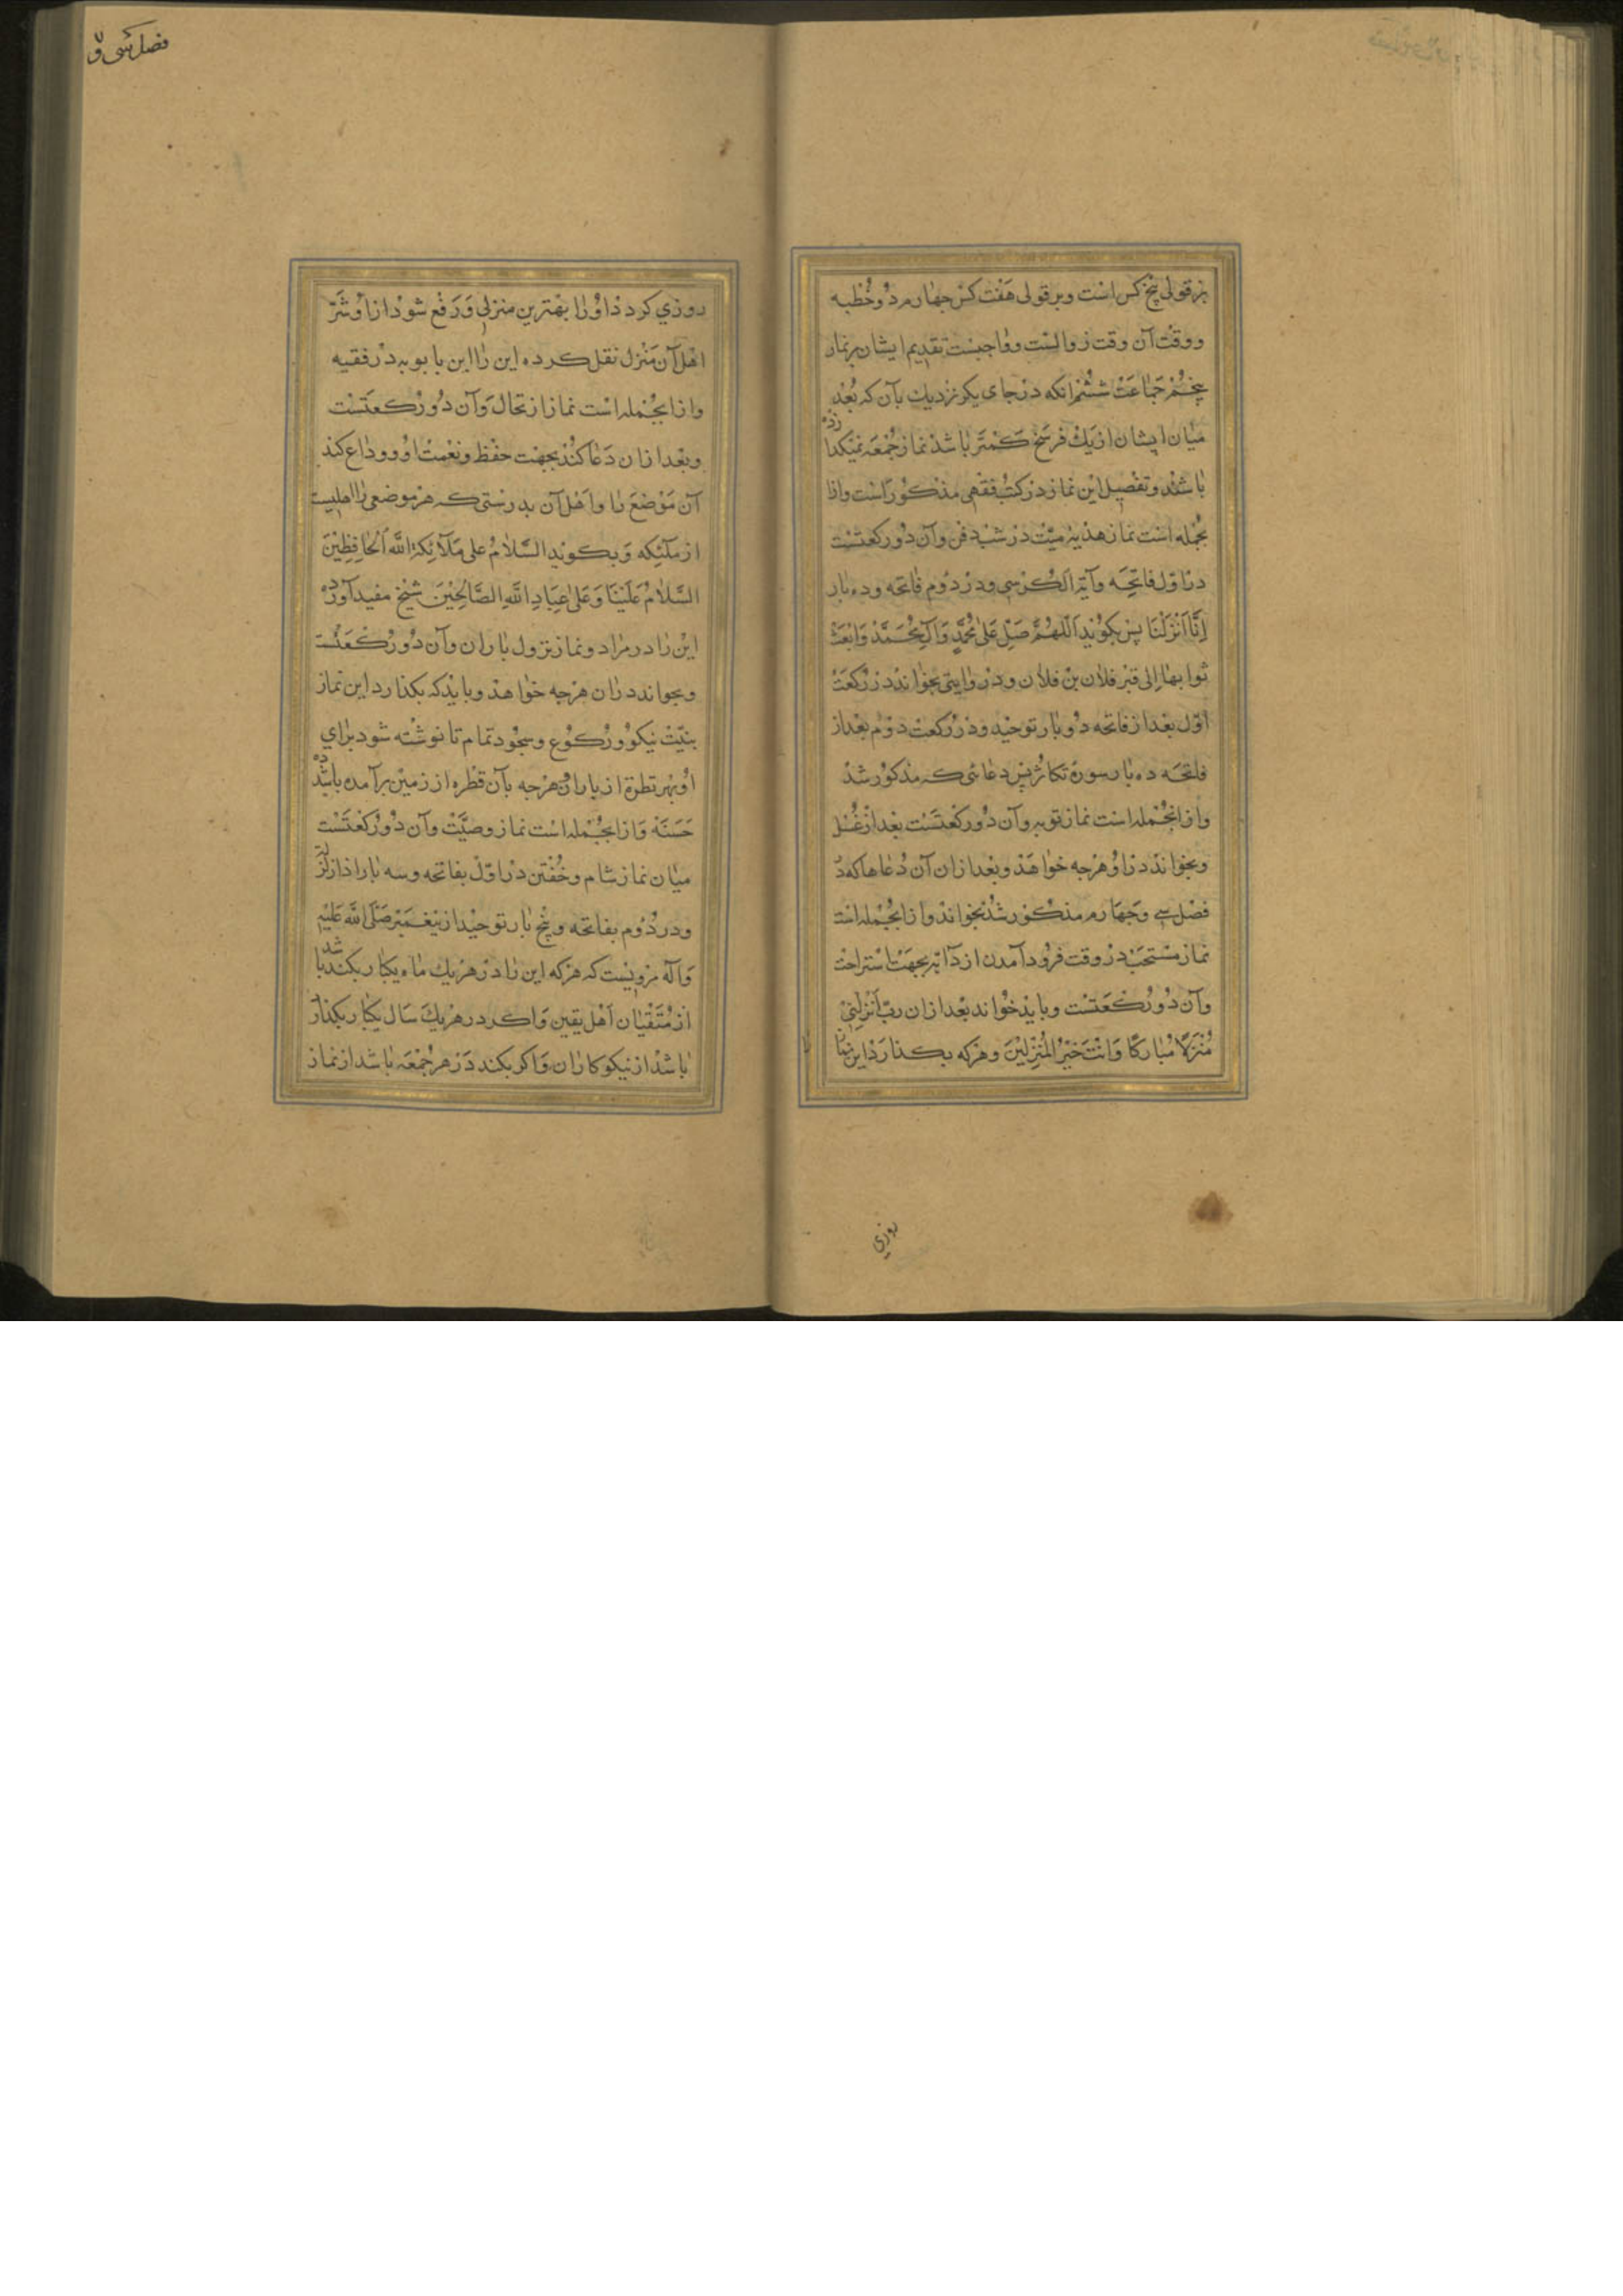 بر قولی پنج کس است و بر قولی هَفْت کس چهارم دُو خُطبه
و وقْت آن وقت زوالست و واجبست تقدیم ایشان بر نماز
پنجُم جَماعَتْ ششُم آنکه در جای یکر نزدیك بآن که بُعْد
میٰان ایشان از یَكْ فرسَخ کَمْتَر باشد نماز جُمْعَه نمیکذارْدَه
باشند و تفْصیل این نماز در کتُب فقهی مذکُور اَست و از آ
نجُمله است نماز هدیۀ میّت در شب دفن و آن دُو رکعتسْت
در اوّل فاتحَه و آیة الکُرسی و در دُوم فاتحه و ده بار
اِنَّا اَنْزَلْنَا پس بکوید اَللّهُمَّ صَلِّ عَلیٰ مُحَمَّدٍ وَآلِ مُحَمَّدْ وَابْعَثْ
ثوابهٰا اِلی قبْر فلان بنْ فلان و در روایتی بخوانند در رکْعَتْ
اوّل بعْد از فاتحه دُو بار توحید و در رکعت دوم بعد از
فاتحَه ده بار سورۀ تکاثر پس دعائی که مذکور شد
و از آنجُمله است نماز توبه و آن دُو رکعتَست بعد از غُسْل
و بخوانَد در اوُ هرچه خواهَد و بعْد از ان آن دُعاها که در
فصْل سی و چَهارم مذکُور شُد بخواند و از آنجُمله است
نماز مسْتَحَبّ در وقت فرُود آمدن از دآبّه بجهَت اسْتراحت
و آن دُو رُکعَتسْت و بایْد خوٰاند بعْد از ان ربِّ اَنْزِلْنِیْ
مُنْزَلاً مُبٰارَکًا وَانْتَ خَیْرُ الْمُنْزِلِیْنَ و هرکه بکذارَدْ این نمٰاز
روزی
فصل سی و
روزی کردد اوُرا بهْترین منزلی وَ رَفْع شود از اوُ شَرّ
اهْل آن مَنْزل نقل کرده این رٰا ابن بابویه درْ فقیه
و از آنجُمله است نماز ارتحال وَ آن دُو رُکعتَسْت
و بعْد از ان دَعٰا کُند بجهْت حفْظ و نعْمتْ اوُ و ودٰاع کند
آن مَوْضعَ رٰا و اَهْل آن بدرستی که هرْ موضعی رٰا اهلیست
از ملٰئکه وَ بکوید السَّلامُ علی مَلآئِکَةِ اللّٰه اَلْحٰافِظِیْنَ
السَّلامُ عَلَیْنَا وَ عَلیٰ عِبَادِ اللّٰهِ الصَّالِحِیْنَ شیْخ مفید آوردْه
این رٰا در مزٰار و نماز نزول بٰارٰان و آن دُو رُکعَتْست
و بخواند دران هرْچه خوٰاهد و بایْد که بکذارد این نماز
بنیّتْ نیکوُ و رُکوُع و سجُود تمام تا نوشْته شود برٰای
اوُ بهر قطرۀ از باران و هرْچه بآن قطره از زمیْن برآمده باشد دَه
حَسَنَهْ وَ از آنجُمله است نماز وصیَّتْ و آن دُو رُکعْتَسْت
میٰان نماز شام و خُفْتن درْ اوّلْ بفاتحه و سه بٰار اذا زلزلة
و در دُوم بفاتحه و پنج بٰار توحیْد از پیغمبَرْ صَلَّی اللّٰه عَلَیْهِ
وَآلَه مرویسْت که هرکه این رٰا درْ هرْیك مٰاه یکبٰار بکند باشد
از مُتَّقیٰان اَهْل یقین وَ اکر در هرْیكَ سَال یکبٰار بکذارَد
بٰاشدْ از نیکوکارٰان وَ اکر بکند دَر هر جُمْعَه بٰاشد از نماز